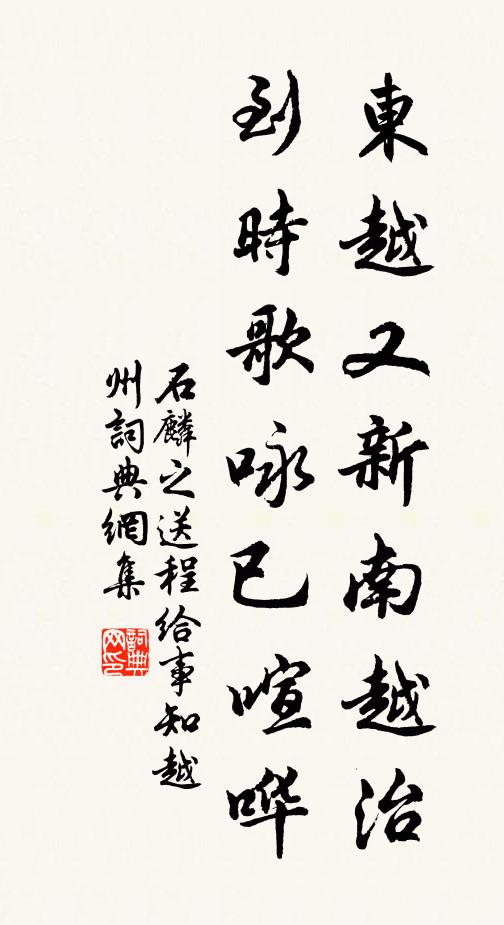 東越又新南越治
到時歌咏已喧哗
石麟之送程给事知越
州詞典網集
詞典网印